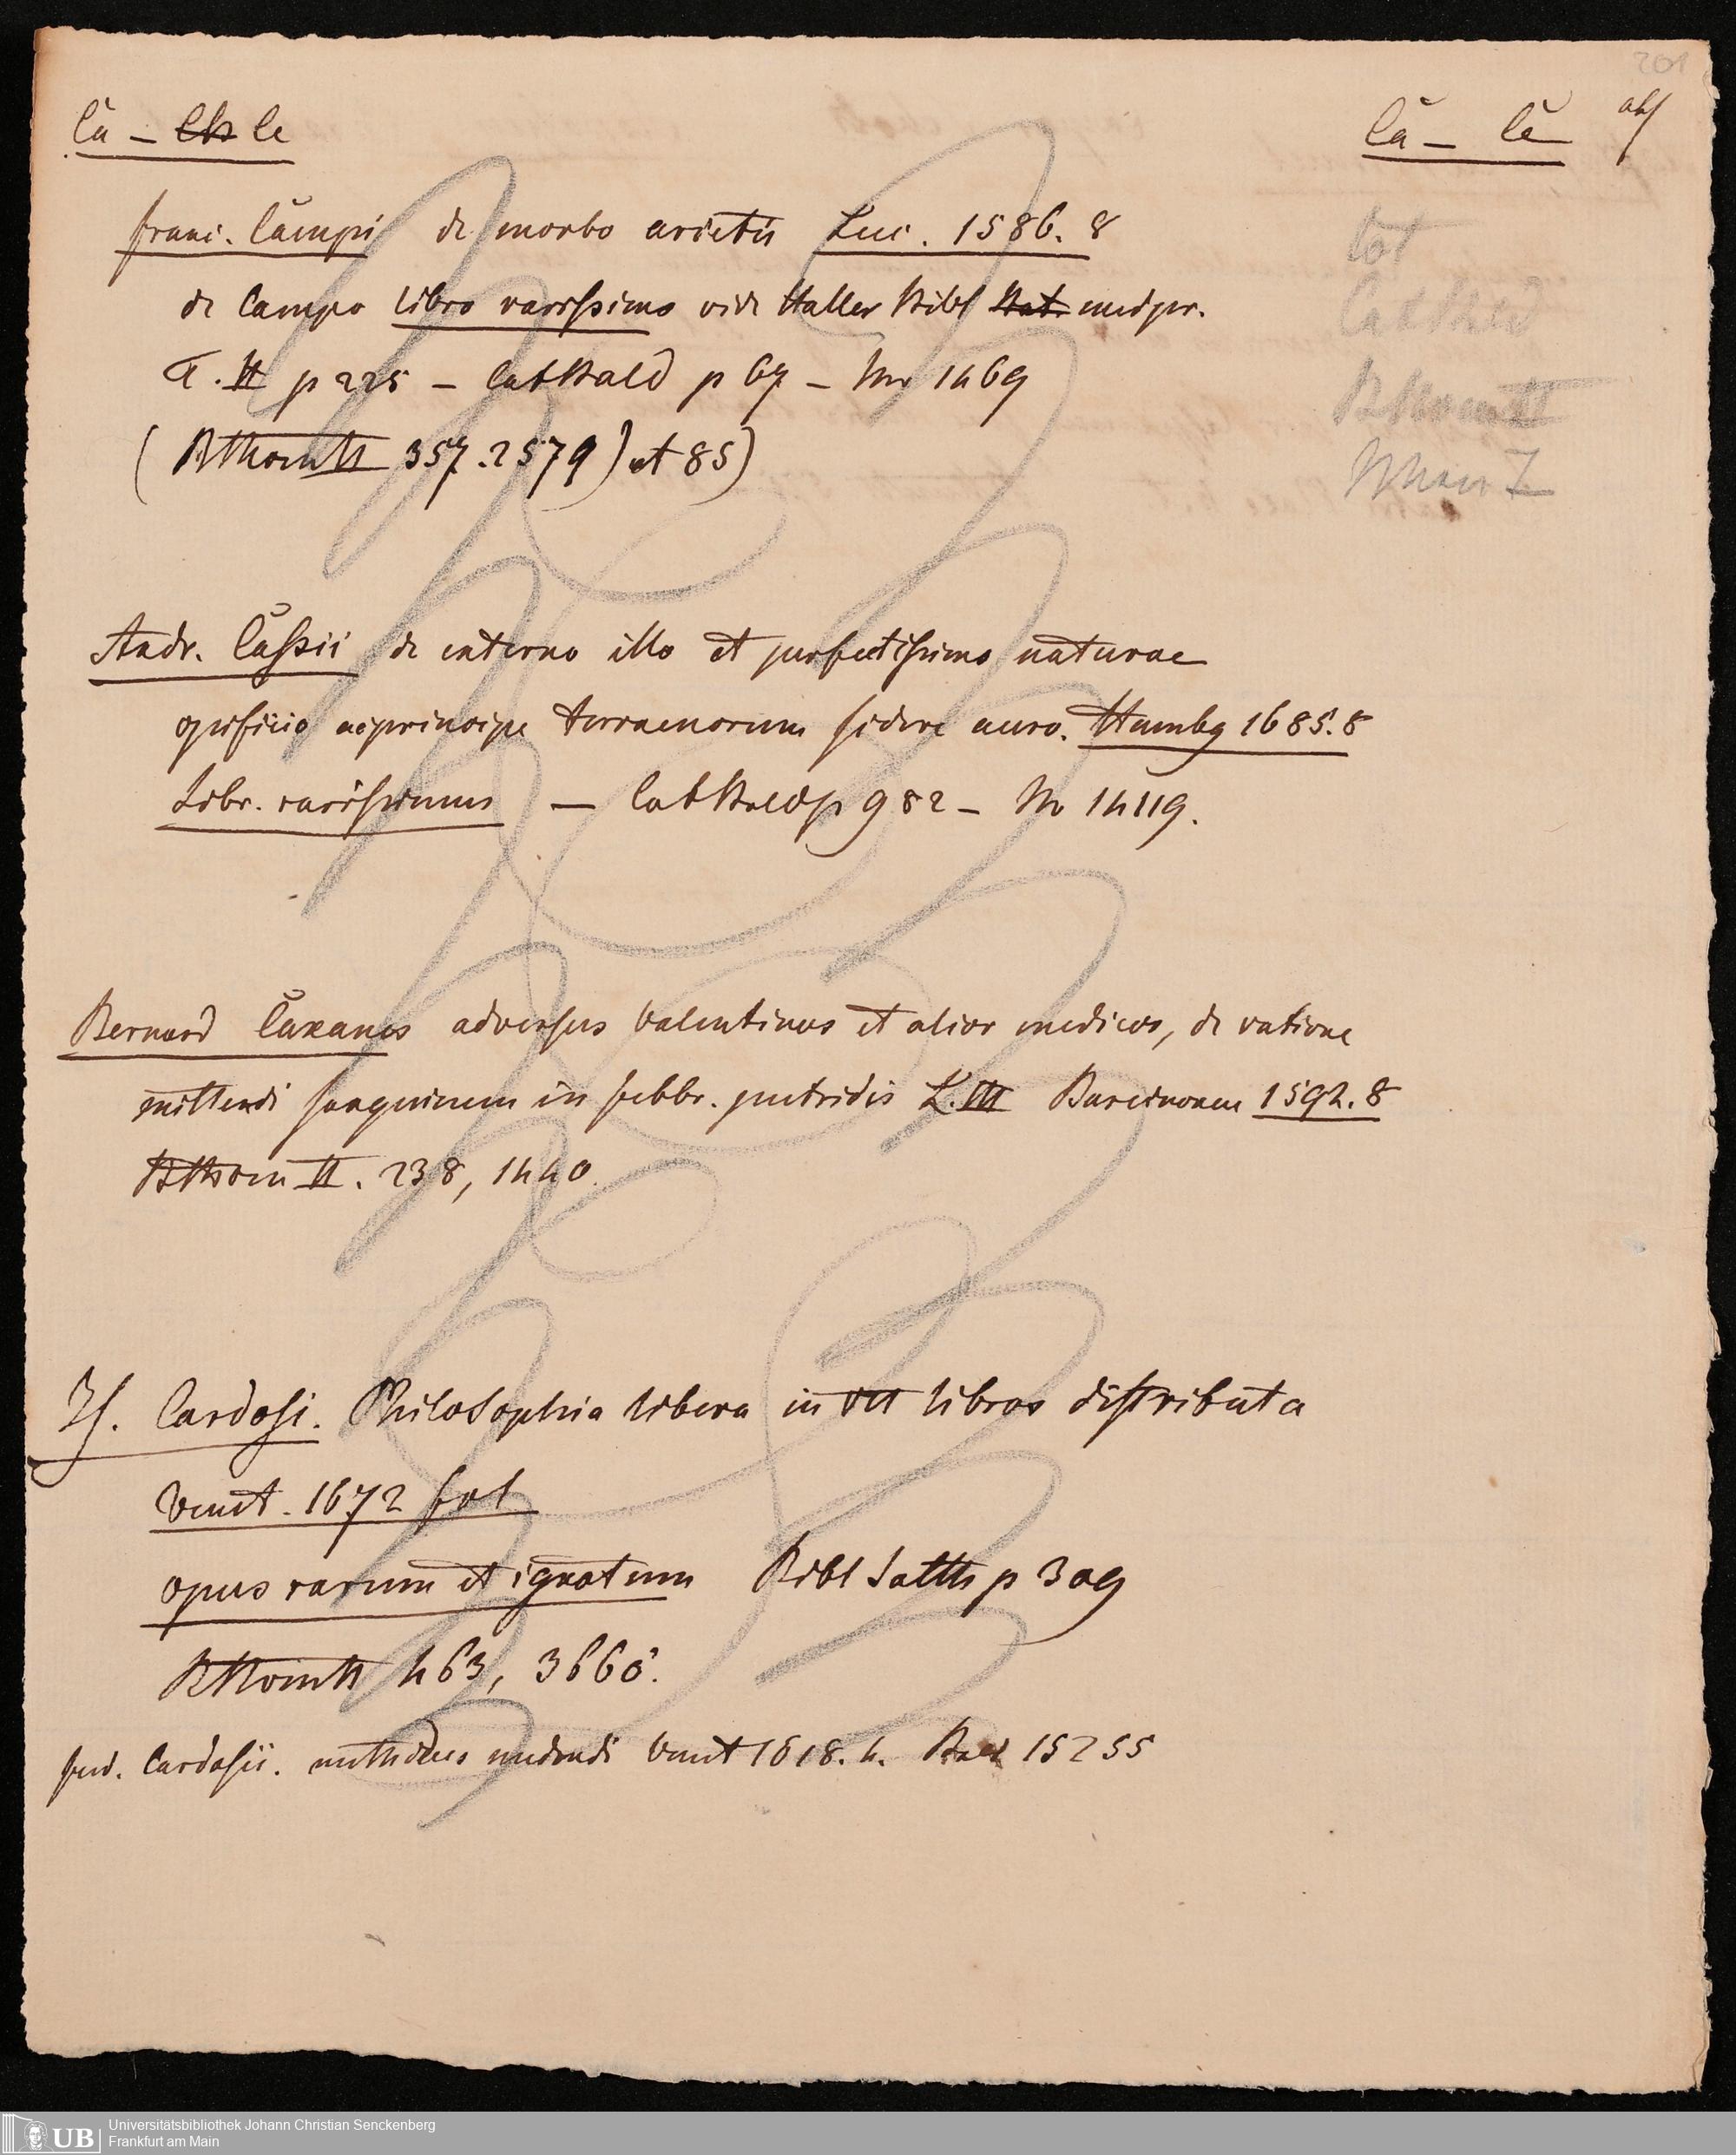 201
Ca – Ce
Ca – Ce abs
Franc. Campi de morbo arietis Luc. 1586. 8
de Campo libro rarissimo vide Haller Bibl med pr.
T. II p 225 – Cat Bald p 67 – No 1469
(BThom II 357. 2579) et 85)
tot
Cat Bald
BThom II
Andr. Cassii de interno illo et perfectissimo naturae
opificio ac principe terraenorum sidere auro. Hambg 1685. 8
Libr. rarissimus – Cat Bald p 982 – No 14119.
Bernard Caxanes adversus Valentinos et alios medicos, de ratione
mittendi sanguinem in febbr. putridis L. III Barcinonem 1592. 8
BThom II. 238, 1440.
Is. Cardosi. Philosophia libera in VII libros distributa
Venet. 1672 fol
opus rarum et ignotum Bibl Salth p 309
BThom II 463, 3660.
Ferd. Cardosii. methodus medendi Venet 1618. 4. Bald 15255
UB
Universitätsbibliothek Johann Christian Senckenberg
Frankfurt am Main